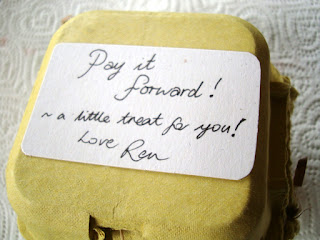 Pay it
forward!
~ a little treat for you!
Love Ren